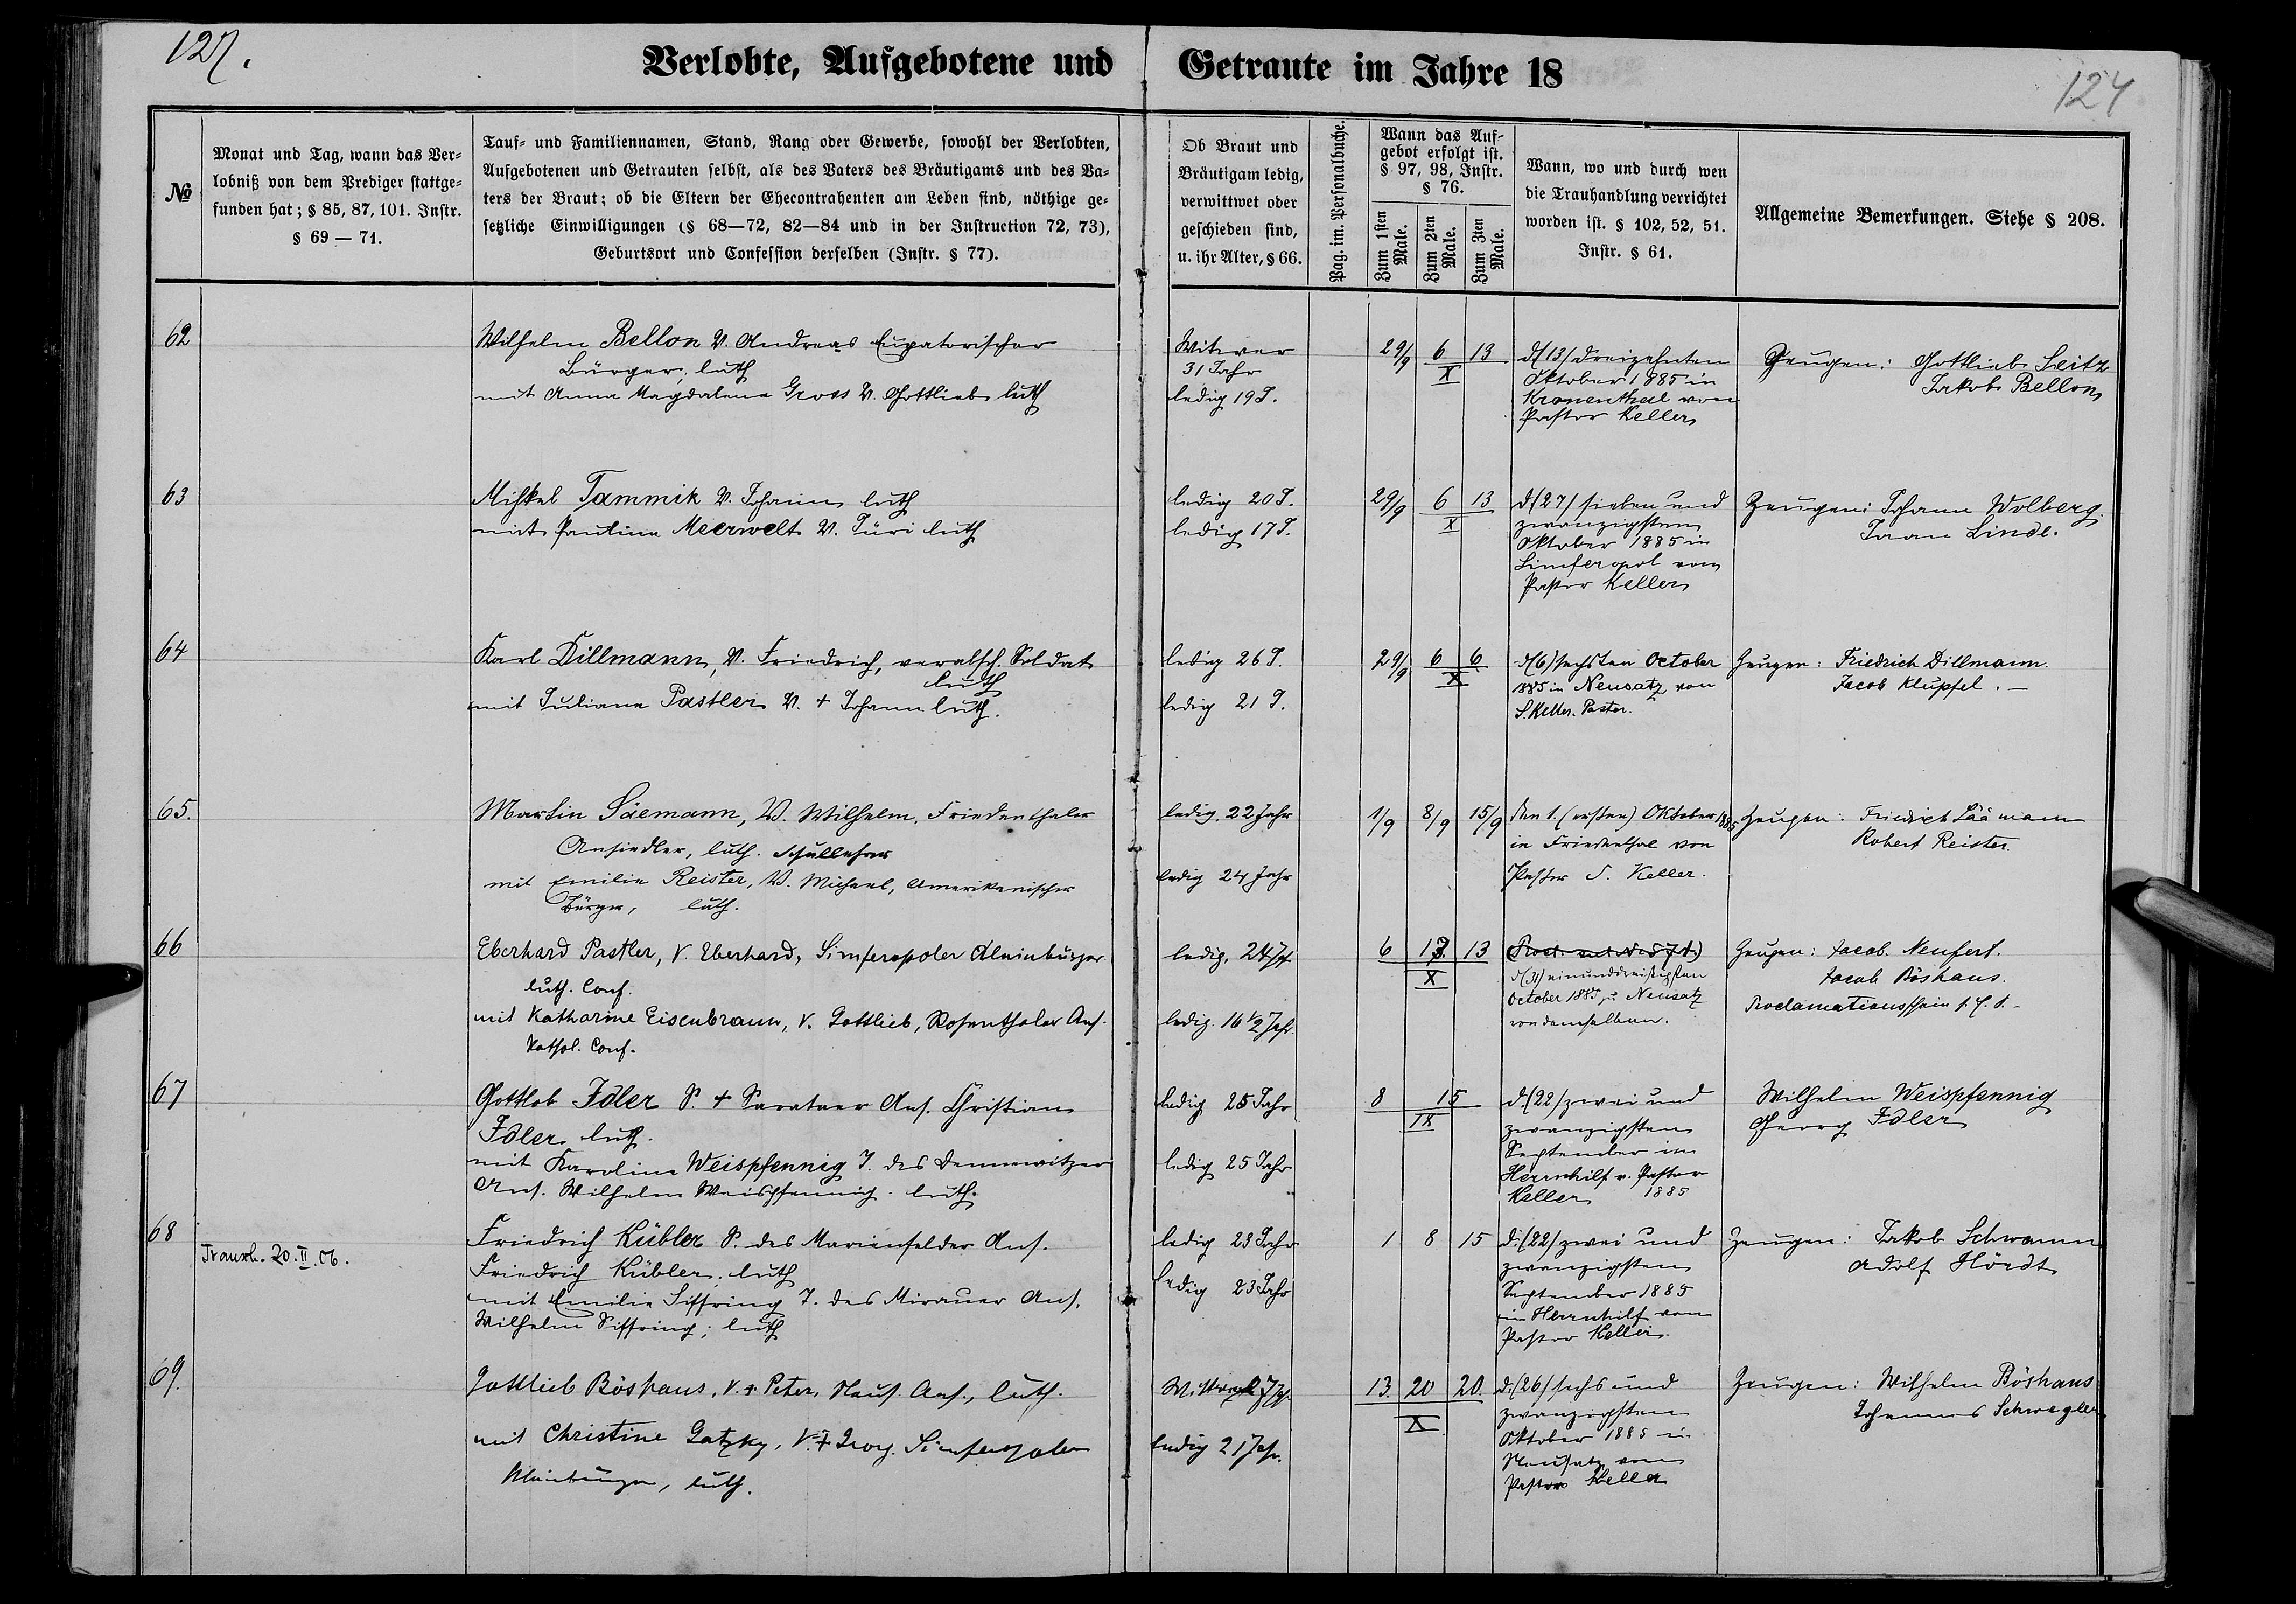 127.
124
Verlobte, Aufgebotene und Getraute im Jahre 18
№
Monat und Tag, wann das Ver-
lobniß von dem Prediger stattge-
funden hat; § 85, 87, 101. Instr.
§ 69 — 71.
Tauf- und Familiennamen, Stand, Rang oder Gewerbe, sowohl der Verlobten,
Aufgebotenen und Getrauten selbst, als des Vaters des Bräutigams und des Va-
ters der Braut; ob die Eltern der Ehecontrahenten am Leben sind, nöthige ge-
setzliche Einwilligungen (§ 68—72, 82—84 und in der Instruction 72, 73),
Geburtsort und Confession derselben (Instr. § 77).
Ob Braut und
Bräutigam ledig,
verwittwet oder
geschieden sind,
u. ihr Alter, § 66.
Pag. im. Personalbuche.
Wann das Auf-
gebot erfolgt ist.
§ 97, 98, Instr.
§ 76.
Zum 1sten
Male.
Zum 2ten
Male.
Zum 3ten
Male.
Wann, wo und durch wen
die Trauhandlung verrichtet
worden ist. § 102, 52, 51.
Instr. § 61.
Allgemeine Bemerkungen. Siehe § 208.
62
Wilhelm Bellon V. Andreas Eupatorischer
Bürger, luth
mit Anna Magdalena Gross V. Gottlieb luth
Witwer
31 Jahr
ledig 19 J.
29/9 6 13
X
d/13/ dreizehnten
Oktober 1885 in
Kronenthal von
Pastor Keller
Zeugen: Gottlieb Seitz
Jakob Bellon
63
Mihkel Tammik V. Johann luth
mit Pauline Meerwelt V. Jüri luth
ledig 20 J.
ledig 17 J.
29/9 6 13
X
d/27/ sieben und
zwanzigsten
Oktober 1885 in
Simferopol von
Pastor Keller
Zeugen: Johann Wolberg.
Jaan Linde.
64
Karl Dillmann, V. Friedrich, verabsch. Soldat
luth
mit Juliane Pastler V. + Johann luth.
ledig 26 J.
ledig 21 J.
29/9 6 6
X
d/6/ sechsten October
1885 in Neusatz von
S. Keller. Pastor.
Zeugen: Friedrich Dillmann.
Jacob Klüpfel. —
65.
Martin Säemann, V. Wilhelm, Friedenthaler
Ansiedler, luth. Schullehrer
mit Emilie Reister, V. Michael, Amerikanischer
Bürger, luth.
ledig. 22 Jahr
ledig 24 Jahr
1/9 8/9 15/9
den 1. (ersten) Oktober 1885
in Friedenthal von
Pastor S. Keller.
Zeugen: Friedrich Säämann
Robert Reister.
66
Eberhard Pastler, V. Eberhard, Simferopoler Kleinbürger
luth. Conf.
mit Katharine Eisenbraun, V. Gottlieb, Rosenthaler Ans.
Kathol. Conf.
ledig, 24 Jhr
ledig. 16 1/2 Jahr.
6 13 13
X
d/31/ einunddreißigsten
October 1885, in Neusatz
von demselben.
Zeugen: Jacob. Neufert.
Jacob Böshans.
Proclamationsschein
67
Gottlob Idler S. + Sarataer Ans. Christian
Idler luth.
mit Karoline Weispfennig T. des Dennewitzer
Ans. Wilhelm Weispfennig. luth.
ledig 25 Jahr
ledig 25 Jahr
8 15
IX
d./22/ zwei und
zwanzigsten
September in
Herrnhilf v. Pastor
Keller 1885
Wilhelm Weispfennig
Georg Idler
68
Trausch. 20. II. 06.
Friedrich Kübler S. des Marienfelder Ans.
Friedrich Kübler, luth
mit Emilie Siffring T. des Mirauer Ans.
Wilhelm Siffring; luth
ledig 23 Jahr
ledig 23 Jahr
1 8 15
d./22/ zwei und
zwanzigsten
September 1885
in Herrnhilf vom
Pastor Keller.
Zeugen: Jakob Schwamm
Adolf Hördt
69.
Gottlieb Böshans, V. + Peter, Neus. Ans., luth.
mit Christine Gatzky, V. + Georg. Simferopoler
Kleinbürger, luth.
ledig 21 Jahr.
13. 20 20.
X
d./26/ sechs und
zwanzigsten
Oktober 1885 in
Neusatz vom
Pastor Keller
Zeugen: Wilhelm Böshans
Johannes Schwegler